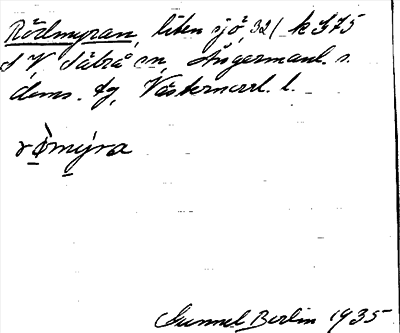 Rödmyran, liten sjö, 321 k 375
S V Sätrå sn, Ångermanl. s.
doms. tg, Västernorrl. l.
rømýra
Gunnel Berlin 1935